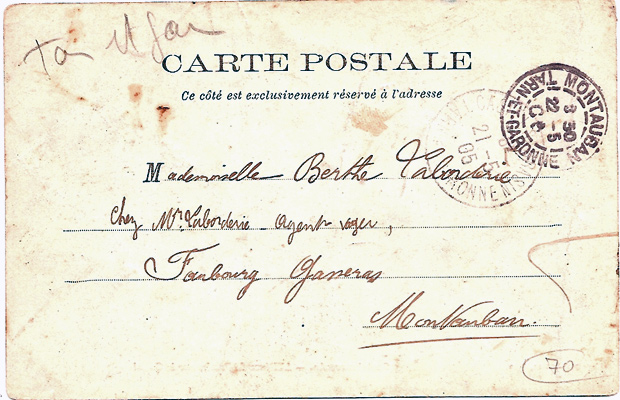 CARTE POSTALE
Ce côté est exclusivement réservé à l'adresse
MONTAUBAN
8 30
22 -5
TARN-ET-GARONNE
21 -5
05
Mademoiselle Berthe Laborderie
Chez Mr. Laborderie Agent voyer,
Faubourg Gasseras
Montauban.
70